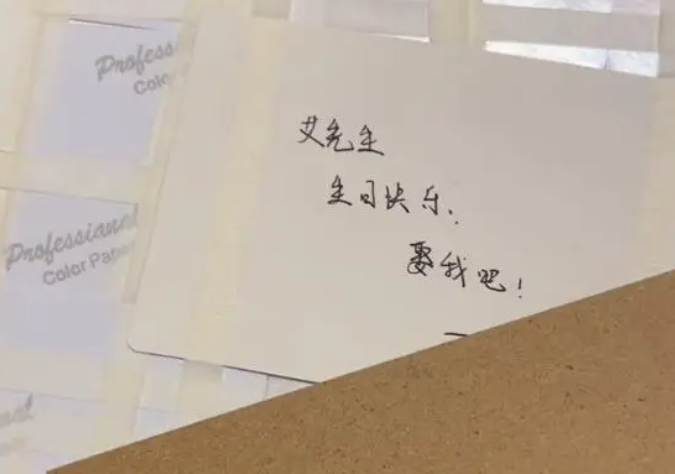 Profess
Color
艾先生
生日快乐!
娶我吧!
Professional
Color Paper